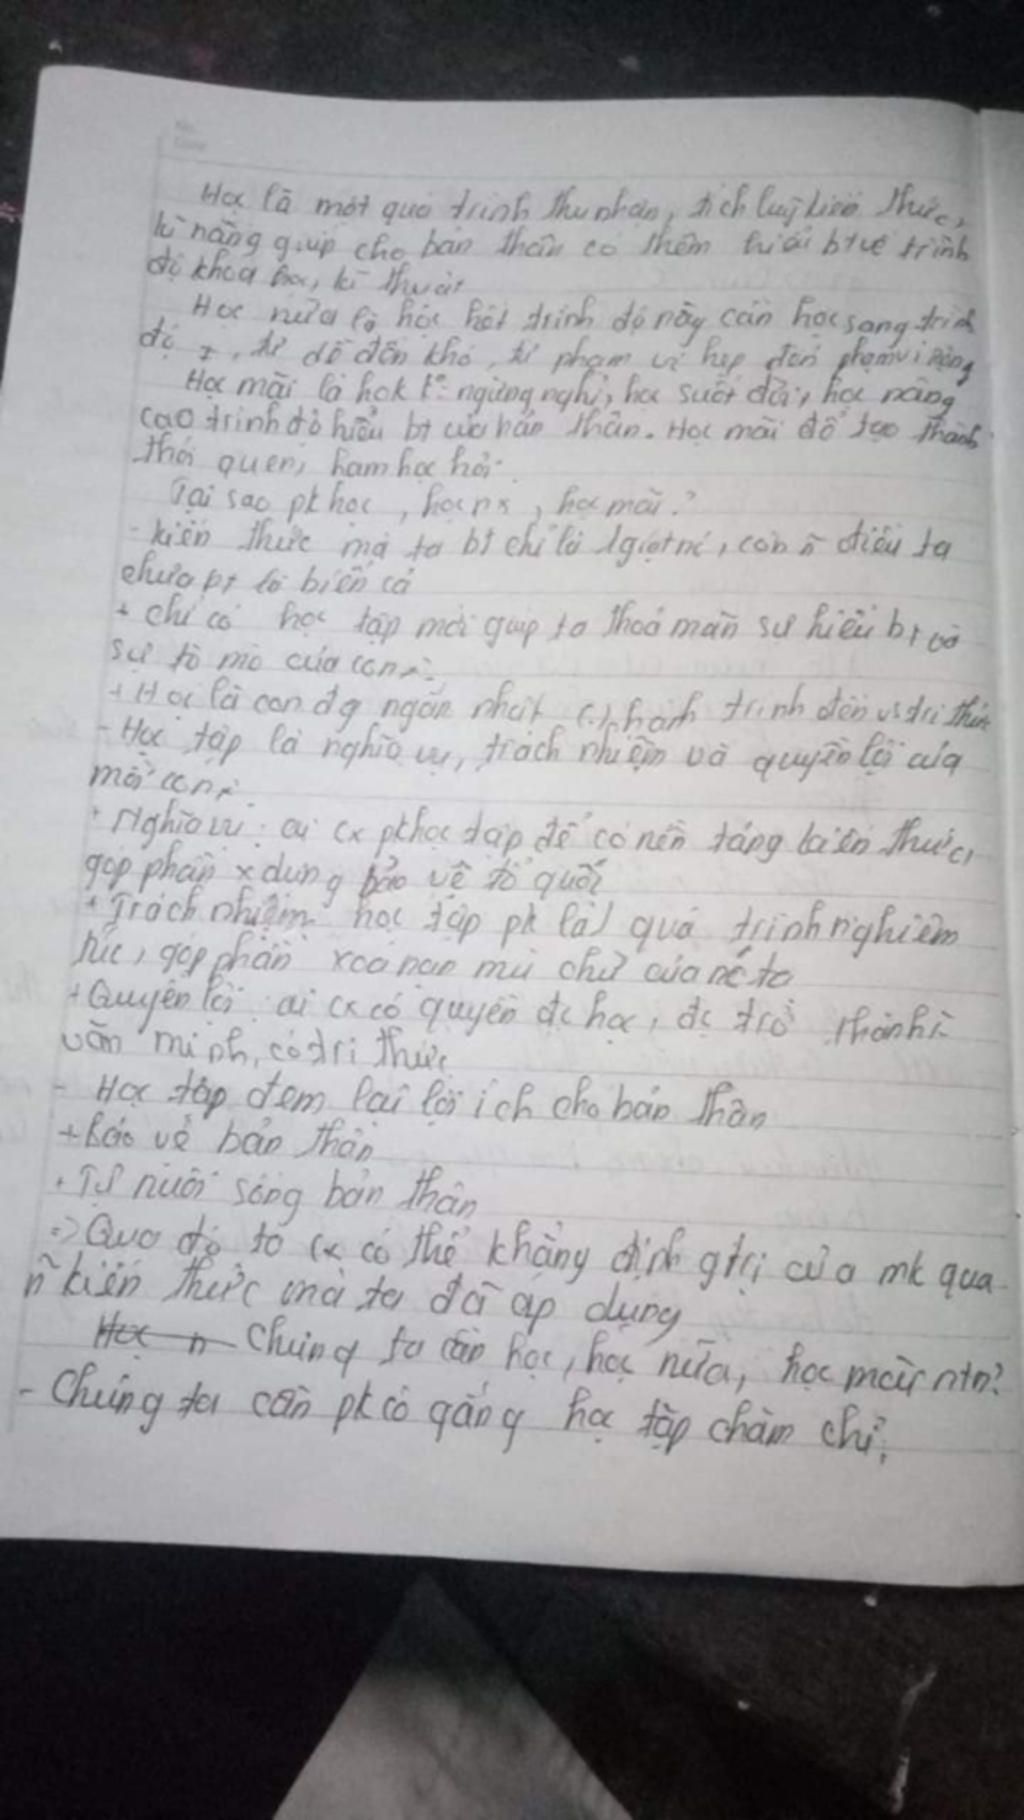 Học là một quá trình thu nhận, tích luỹ kiến thức,
kĩ năng giúp cho bản thân có thêm hiểu bt về trình
độ khoa học, kĩ thuật
Học nữa là học hết trình độ này cần học sang trình
độ ≠, từ dễ đến khó, từ phạm vi hẹp đến phạm vi rộng
Học mãi là hok ngừng nghỉ, học suốt đời, học nâng
cao trình độ hiểu bt của bản thân. Học mãi để tạo thành
thói quen, ham học hỏi.
Tại sao pk học, học ns, học mãi?
- kiến thức mà ta bt chỉ là 1 giọt nc, còn n~ điều ta
chưa bt là biển cả
+ chỉ có học tập mới giúp ta thoả mãn sự hiểu bt và
sự tò mò của con
+ Học là con đg ngắn nhất (.) hành trình đến vs tri thức
- Học tập là nghĩa vụ, trách nhiệm và quyền lợi của
mỗi con
+ Nghĩa vụ: ai cx pk học tập để có nền tảng kiến thức,
góp phần x dựng bảo vệ tổ quốc
+ Trách nhiệm học tập pk là 1 quá trình nghiêm
túc, góp phần xoá nạn mù chữ của nc ta
+ Quyền lợi: ai cx có quyền đc học, đc trở thành
văn minh, có tri thức
- Học tập đem lại lợi ích cho bản thân
+ Bảo vệ bản thân
+ Tự nuôi sống bản thân
=> Qua đó ta cx có thể khẳng định gtrị của mk qua
n~ kiến thức mà ta đã áp dụng
Học n Chúng ta cần học, học nữa, học mãi ntn?
- Chúng ta cần pk cố gắng học tập chăm chỉ,